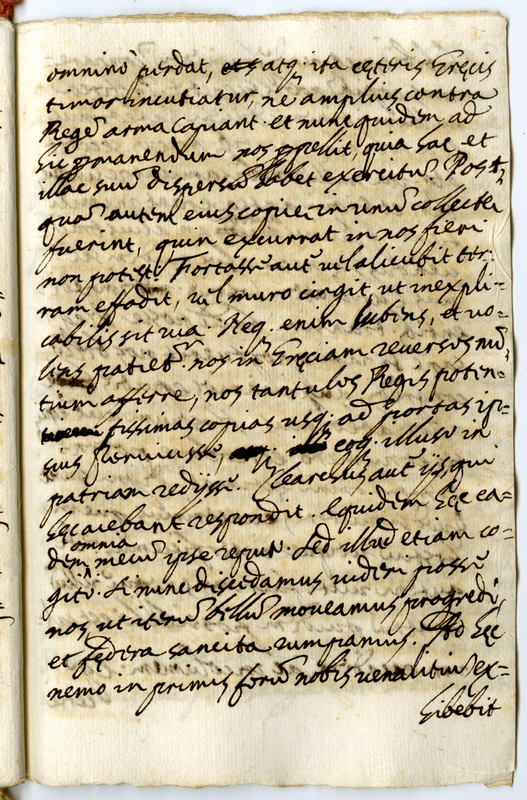 omninò perdat, atq; ita cęteris Gręcis
timor incutiatur, ne amplius contra
Regē arma capiant. et nunc quidem ad
hic pmanendum nos ppellit, quia hac et
illac suū dispersū habet exercitū. Post
quā autem eius copię in unū collectę
fuerint, quin excurrat in nos fieri
non potest. Fortassè aut uel alicubit ter
ram effodit, uel muro cingit, ut inexpli-
cabilis sit uia. Neq. enim lubens, et uo-
lens patiet nos in Gręciam reuersos nū-
tium afferre, nos tantulos Regis poten-
tissimas copias usq. ad portas ip-
sius eoq. illuso in
patriam redijsse. Clearchus aut ijs qui
hęc aiebant respondit. Equidem hęc ea-
dem omnia mecū ipse reputo. Sed illud etiam co-
gito. Si nunc discedamus uideri posse
nos ut iterū bellū moueamus progredi,
et fędera sancita rumpamus. Ad hęc
nemo in primis forū nobis uenalitiū ex-
hibebit